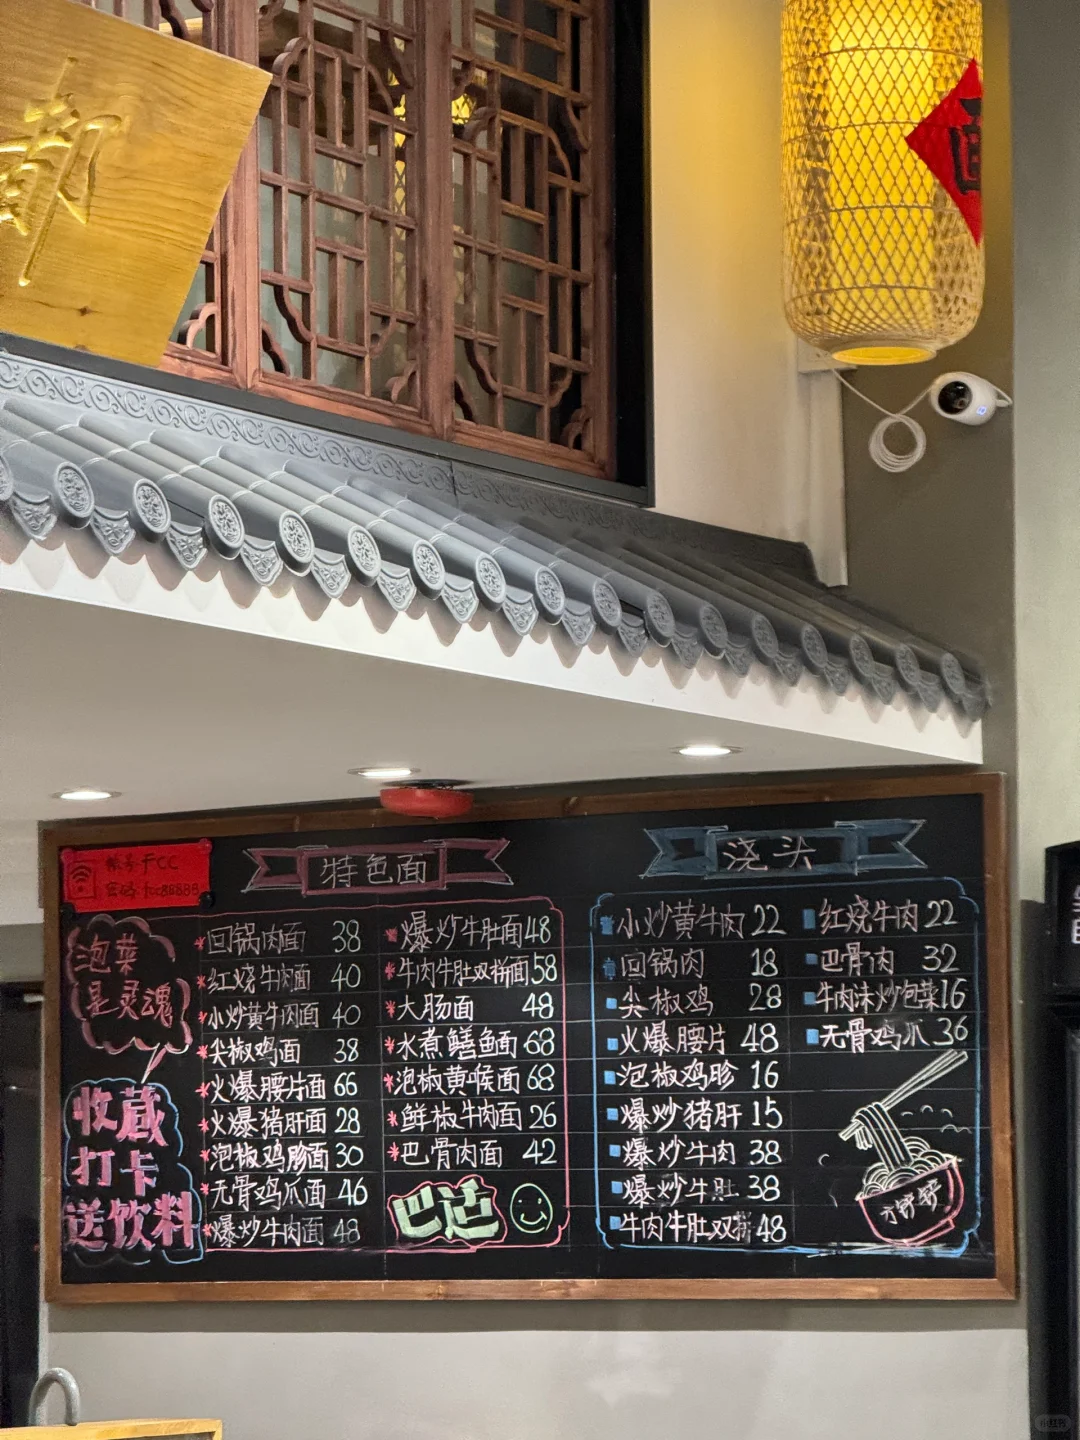 都
面
账号FCC
密码fcc88888
泡菜
是灵魂
收藏
打卡
送饮料
特色面
回锅肉面 38
红烧牛肉面 40
小炒黄牛肉面 40
尖椒鸡面 38
火爆腰片面 66
火爆猪肝面 28
泡椒鸡胗面 30
无骨鸡爪面 46
爆炒牛肉面 48
爆炒牛肚面 48
牛肉牛肚双拼面 58
大肠面 48
水煮鳝鱼面 68
泡椒黄喉面 68
鲜椒牛肉面 26
巴骨肉面 42
巴适
浇头
小炒黄牛肉 22
回锅肉 18
尖椒鸡 28
火爆腰片 48
泡椒鸡胗 16
爆炒猪肝 15
爆炒牛肉 38
爆炒牛肚 38
牛肉牛肚双拼 48
红烧牛肉 22
巴骨肉 32
牛肉沫炒泡菜 16
无骨鸡爪 36
小红书